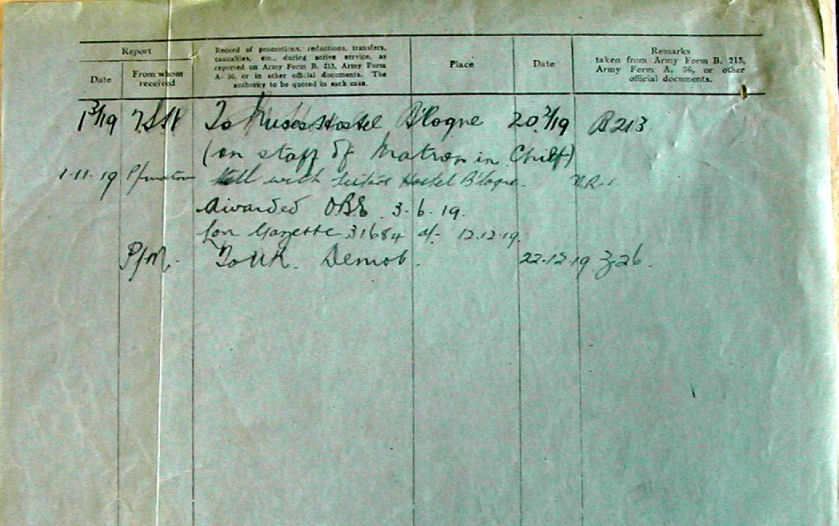 Report
Record of promotions, reductions, transfers,
casualties, etc., during active service, as
reported on Army Form B. 213, Army Form
A. 36, or in other official documents. The
authority to be quoted in each case.
Place
Date
Remarks
taken from Army Form B. 213,
Army Form A. 36, or other
official documents.
Date
From whom
received
1 3/19 7 S.H To Hostel B'logne 20.2/19 B 213
(on staff of Matron in Chief)
1-11-19 P/matron with Sisters Hostel B'logne.
Awarded OBE 3-6-19.
Lon Gazette 31684 d/- 12.12.19.
P/M. To UK. Demob. 22-12-19 Z-26.